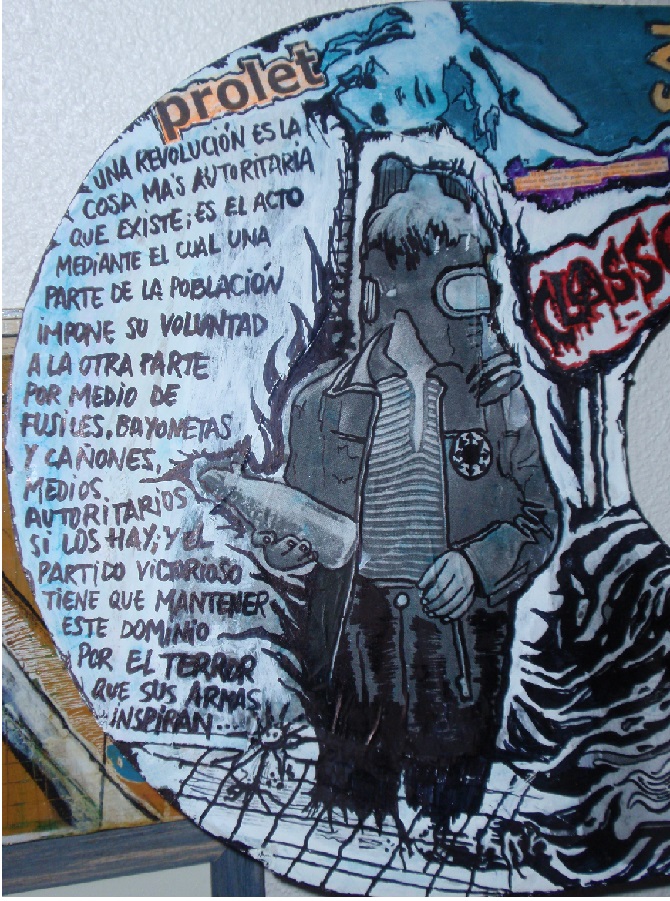 prolet
UNA REVOLUCIÓN ES LA
COSA MÁS AUTORITARIA
QUE EXISTE; ES EL ACTO
MEDIANTE EL CUAL UNA
PARTE DE LA POBLACIÓN
iMPONE SU VOLUNTAD
A LA OTRA PARTE
POR MEDIO DE
FUSILES, BAYONETAS
Y CAÑONES,
MEDIOS
AUTORITARIOS
SI LOS HAY; Y EL
PARTIDO VICTORIOSO
TIENE QUE MANTENER
ESTE DOMINIO
POR EL TERROR
QUE SUS ARMAS
iNSPIRAN...
CLASS